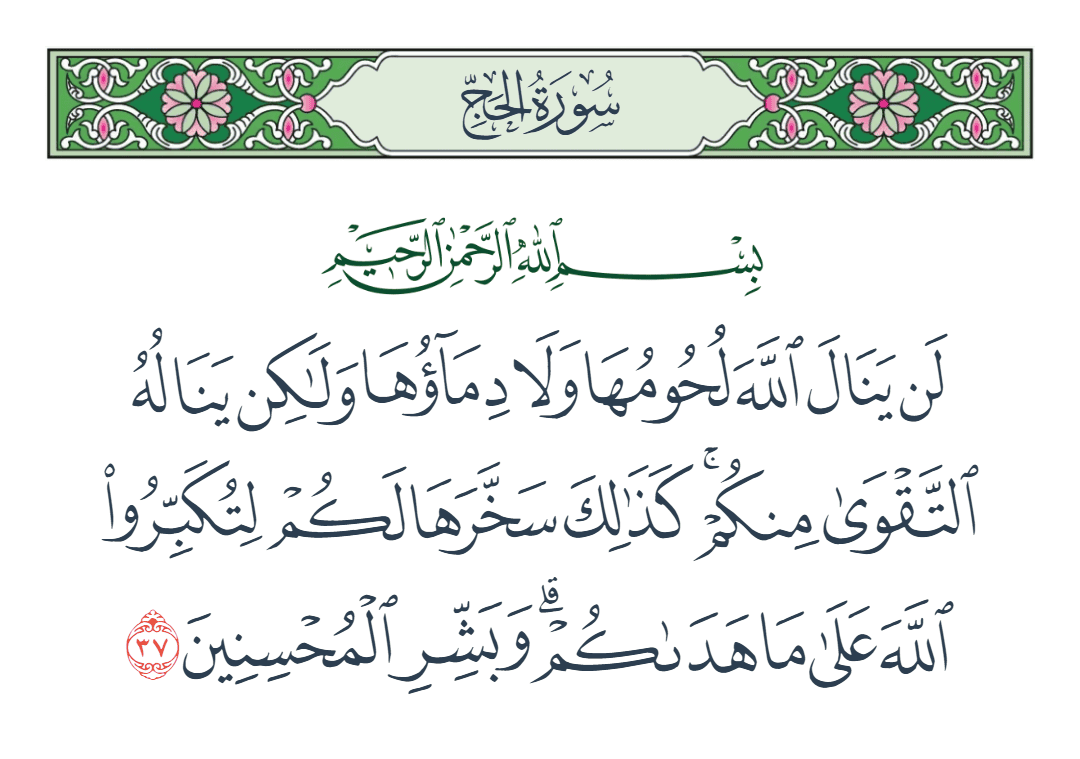 سُورَةُ الحَجِّ
بِسْمِ ٱللَّهِ ٱلرَّحْمَٰنِ ٱلرَّحِيمِ
لَن يَنَالَ ٱللَّهَ لُحُومُهَا وَلَا دِمَآؤُهَا وَلَٰكِن يَنَالُهُ
ٱلتَّقْوَىٰ مِنكُمْ ۚ كَذَٰلِكَ سَخَّرَهَا لَكُمْ لِتُكَبِّرُوا۟
ٱللَّهَ عَلَىٰ مَا هَدَىٰكُمْ ۗ وَبَشِّرِ ٱلْمُحْسِنِينَ ٣٧